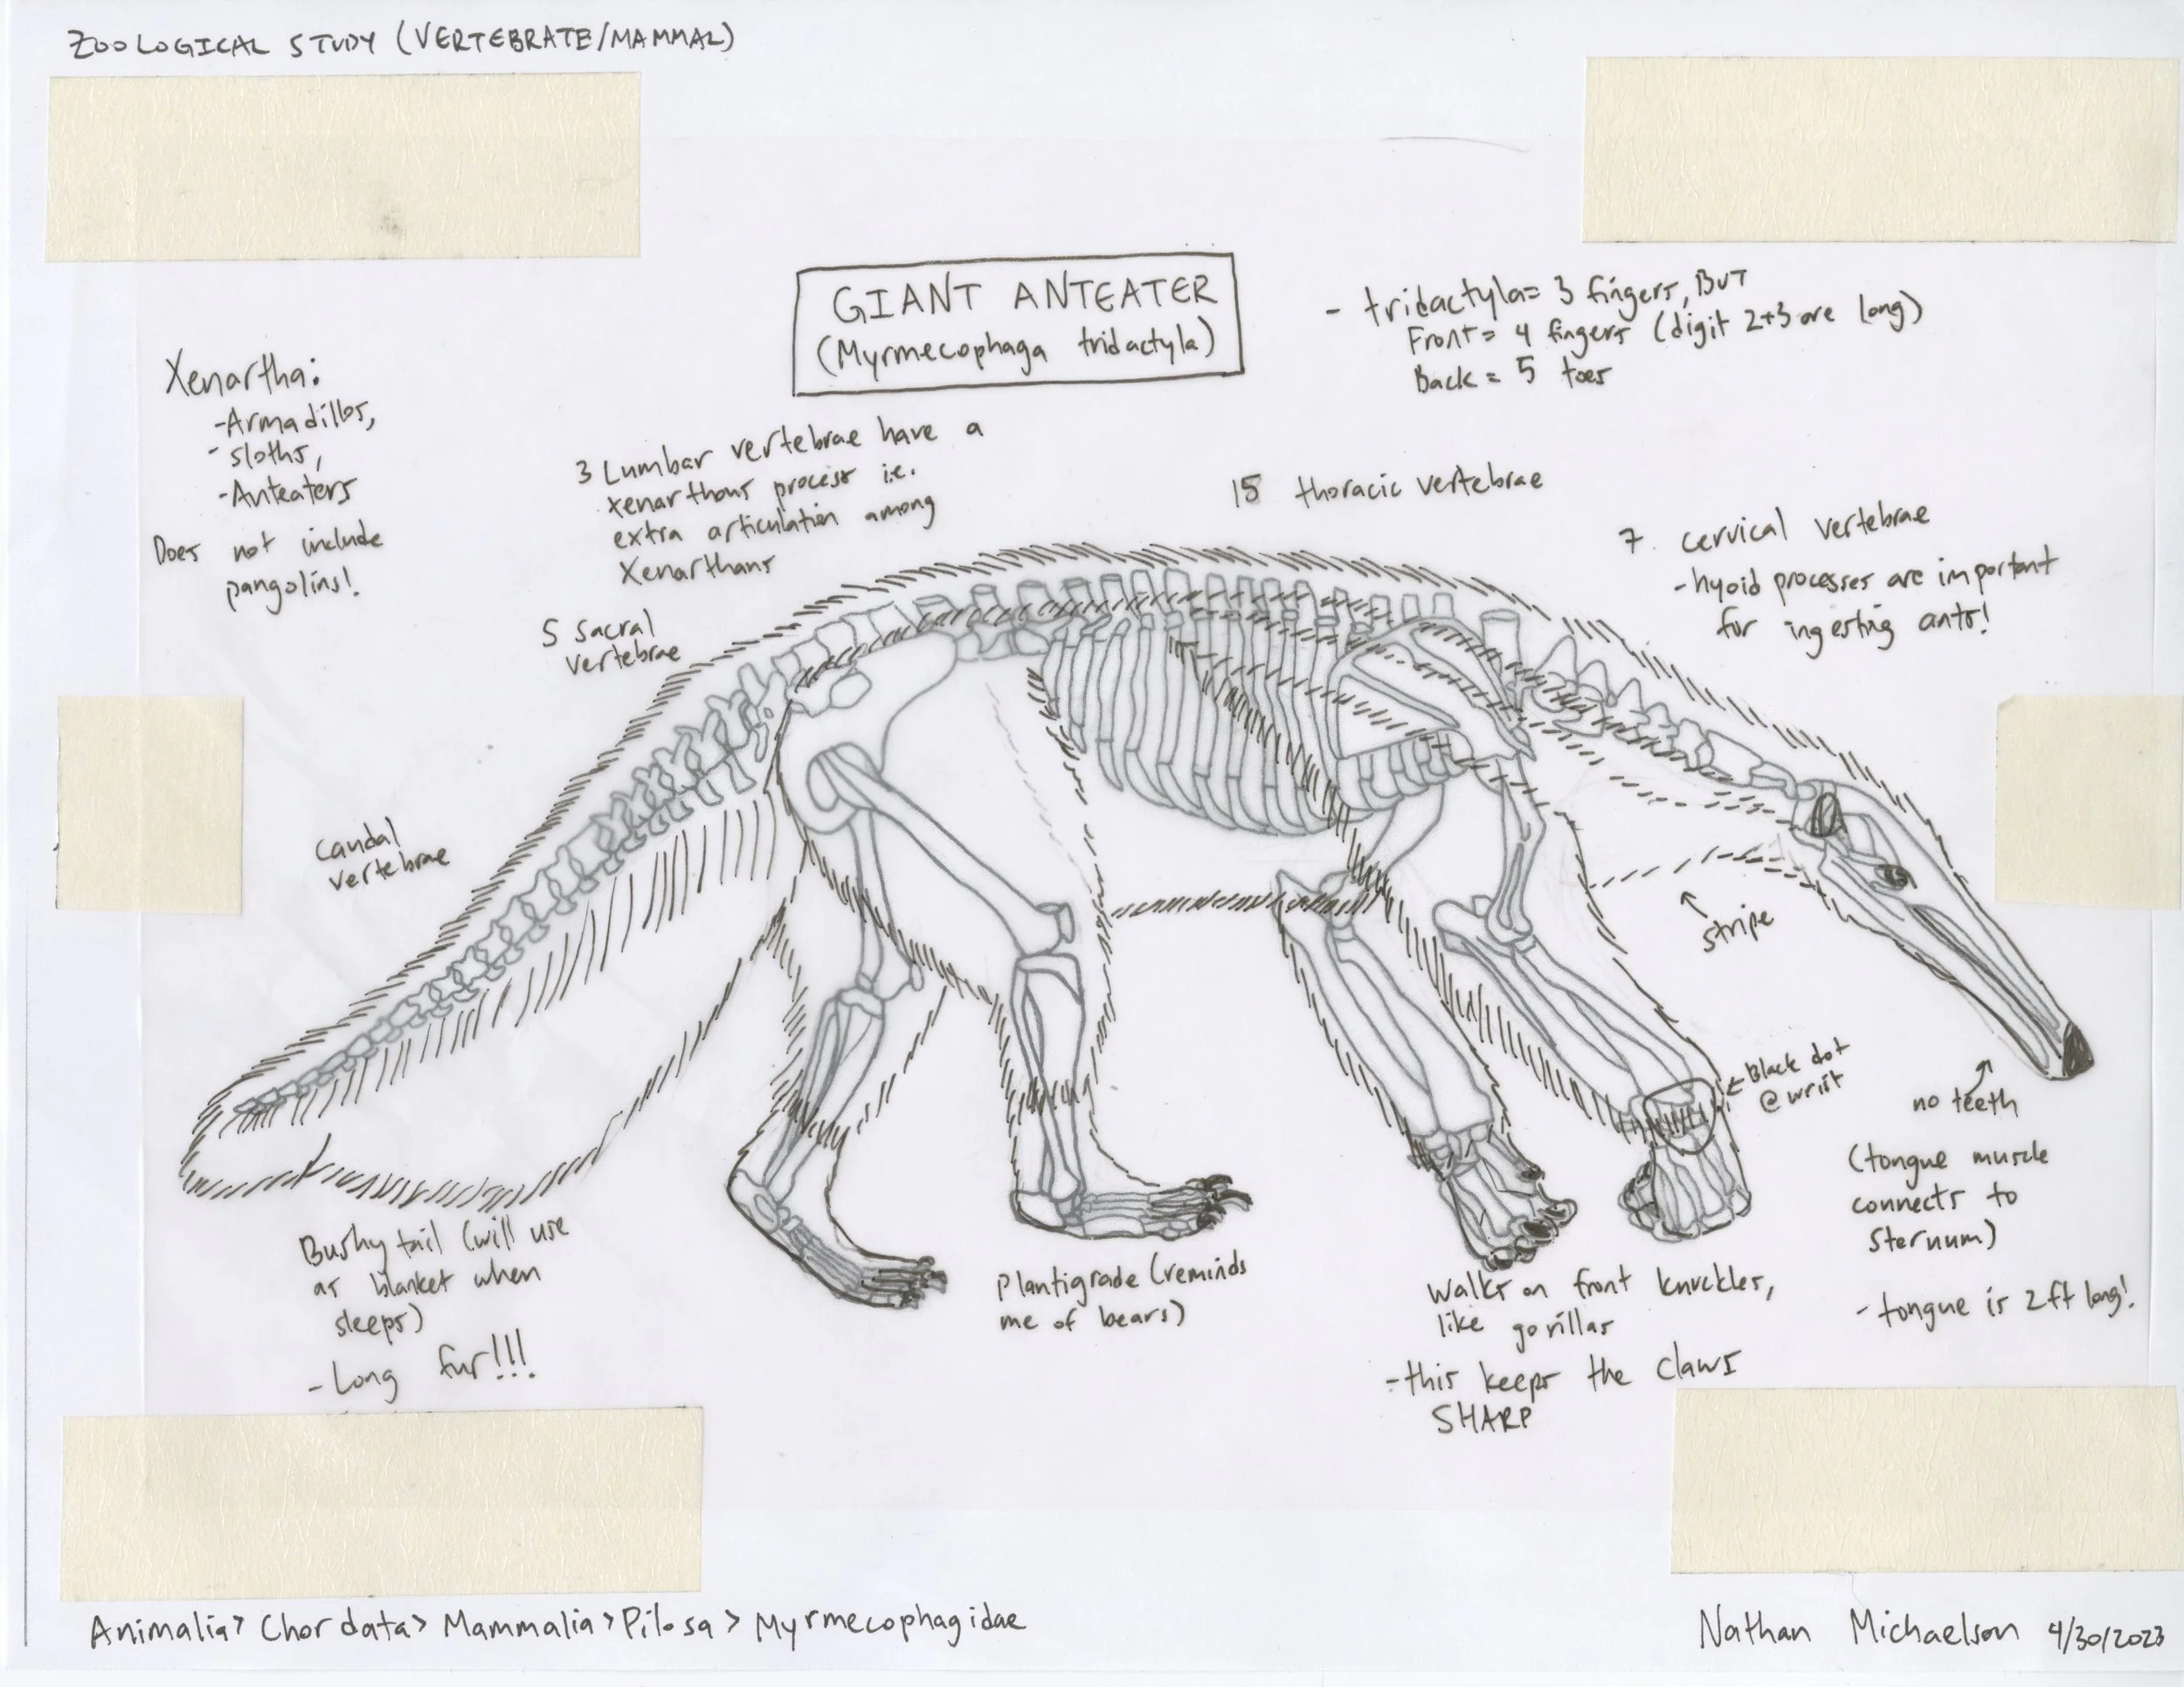 ZOOLOGICAL STUDY (VERTEBRATE/MAMMAL)
GIANT ANTEATER
(Myrmecophaga tridactyla)
- tridactyla= 3 fingers, BUT
Front= 4 fingers (digit 2+3 are long)
Back = 5 toes
Xenartha:
-Armadillos,
- sloths,
-Anteaters
Does not include
pangolins!
3 Lumbar vertebrae have a
xenarthous process i.e.
extra articulation among
Xenarthans
15 thoracic vertebrae
7. cervical vertebrae
-hyoid processes are important
for ingesting ants!
5 sacral
vertebrae
caudal
vertebrae
stripe
Black dot
@ wrist
no teeth
(tongue muscle
connects to
sternum)
- tongue is 2ft long!
Bushy tail (will use
as blanket when
sleeps)
- Long fur!!!
Plantigrade (reminds
me of bears)
Walks on front knuckles,
like gorillas
-this keeps the claws
SHARP
Animalia> Chordata> Mammalia>Pilosa> Myrmecophagidae
Nathan Michaelson 4/30/2023